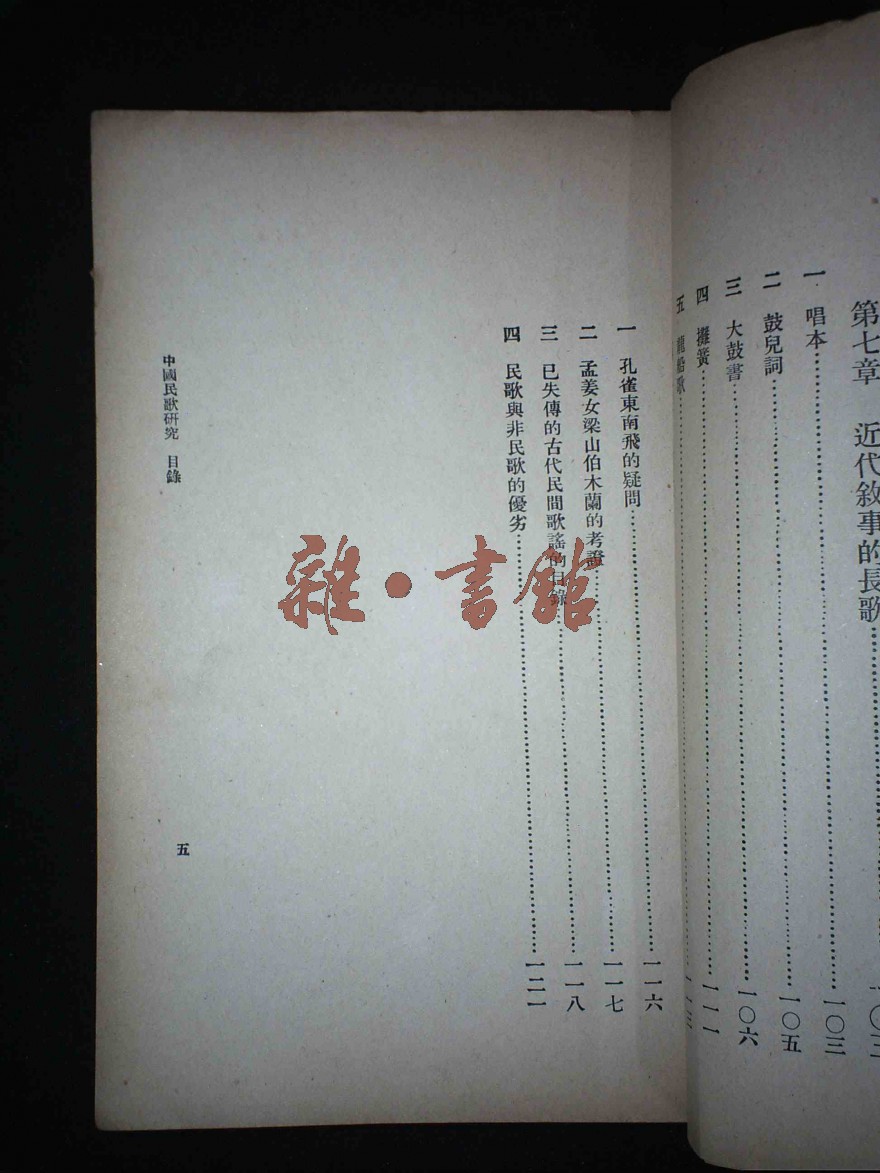 第七章　近代敘事的長歌……一〇三
一　唱本……一〇三
二　鼓兒詞……一〇五
三　大鼓書……一〇六
四　攤簧……一一一
五　龍船歌……一一三
一　孔雀東南飛的疑問……一一六
二　孟姜女梁山伯木蘭的考證……一一七
三　已失傳的古代民間歌謠的目錄……一一八
四　民歌與非民歌的優劣……一二一
中國民歌研究　目錄
五
雜·書館